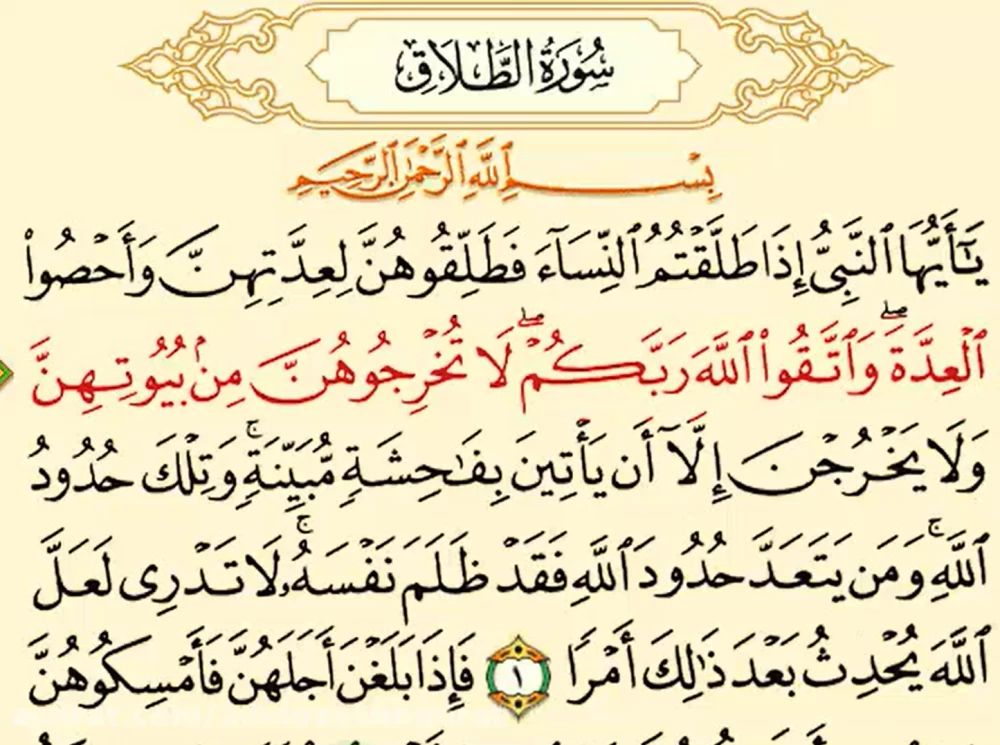 سُورَةُ الطَّلَاقِ
بِسْمِ ٱللَّهِ ٱلرَّحْمَٰنِ ٱلرَّحِيمِ
يَـٰٓأَيُّهَا ٱلنَّبِىُّ إِذَا طَلَّقْتُمُ ٱلنِّسَآءَ فَطَلِّقُوهُنَّ لِعِدَّتِهِنَّ وَأَحْصُوا۟
ٱلْعِدَّةَ ۖ وَٱتَّقُوا۟ ٱللَّهَ رَبَّكُمْ ۖ لَا تُخْرِجُوهُنَّ مِنۢ بُيُوتِهِنَّ
وَلَا يَخْرُجْنَ إِلَّآ أَن يَأْتِينَ بِفَـٰحِشَةٍ مُّبَيِّنَةٍ ۚ وَتِلْكَ حُدُودُ
ٱللَّهِ ۚ وَمَن يَتَعَدَّ حُدُودَ ٱللَّهِ فَقَدْ ظَلَمَ نَفْسَهُۥ ۚ لَا تَدْرِى لَعَلَّ
ٱللَّهَ يُحْدِثُ بَعْدَ ذَٰلِكَ أَمْرًا ١ فَإِذَا بَلَغْنَ أَجَلَهُنَّ فَأَمْسِكُوهُنَّ